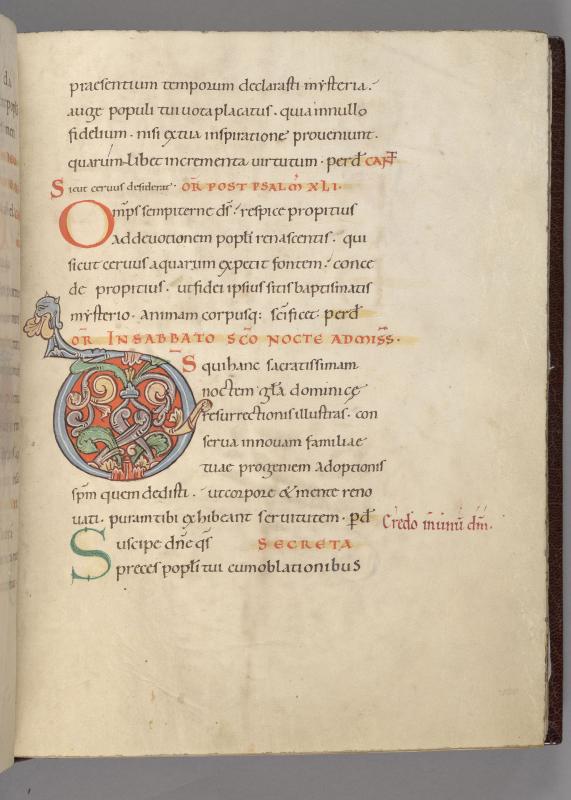 praesentium temporum declarasti mysteria.
auge populi tui uota placatus. quia in nullo
fidelium. nisi ex tua inspiratione proueniunt.
quarum libet incrementa virtutum. per dn̄
Sicut ceruus desiderat. OR̄ POST PSALM̄ XLI.
Omp̄s sempiterne ds̄. respice propitius
ad deuotionem popl̄i renascentis. qui
sicut ceruus aquarum expetit fontem. conce
de propitius. ut fidei ipsius sitis baptismatis
mysterio. animam corpusq; sc̄ificet. per dn̄
OR̄ IN SABBATO SC̄O NOCTE AD MISS̄.
D̄S qui hanc sacratissimam
noctem gl̄a dominicę
resurrectionis illustras. con
serua in nouam familiae
tuae progeniem adoptionis
sp̄m quem dedisti. ut corpore & mente reno
uati. puram tibi exhibeant seruitutem. p̄ dn̄
Credo in unū dm̄.
Suscipe dn̄e qs̄ SECRETA
preces popl̄i tui cum oblationibus